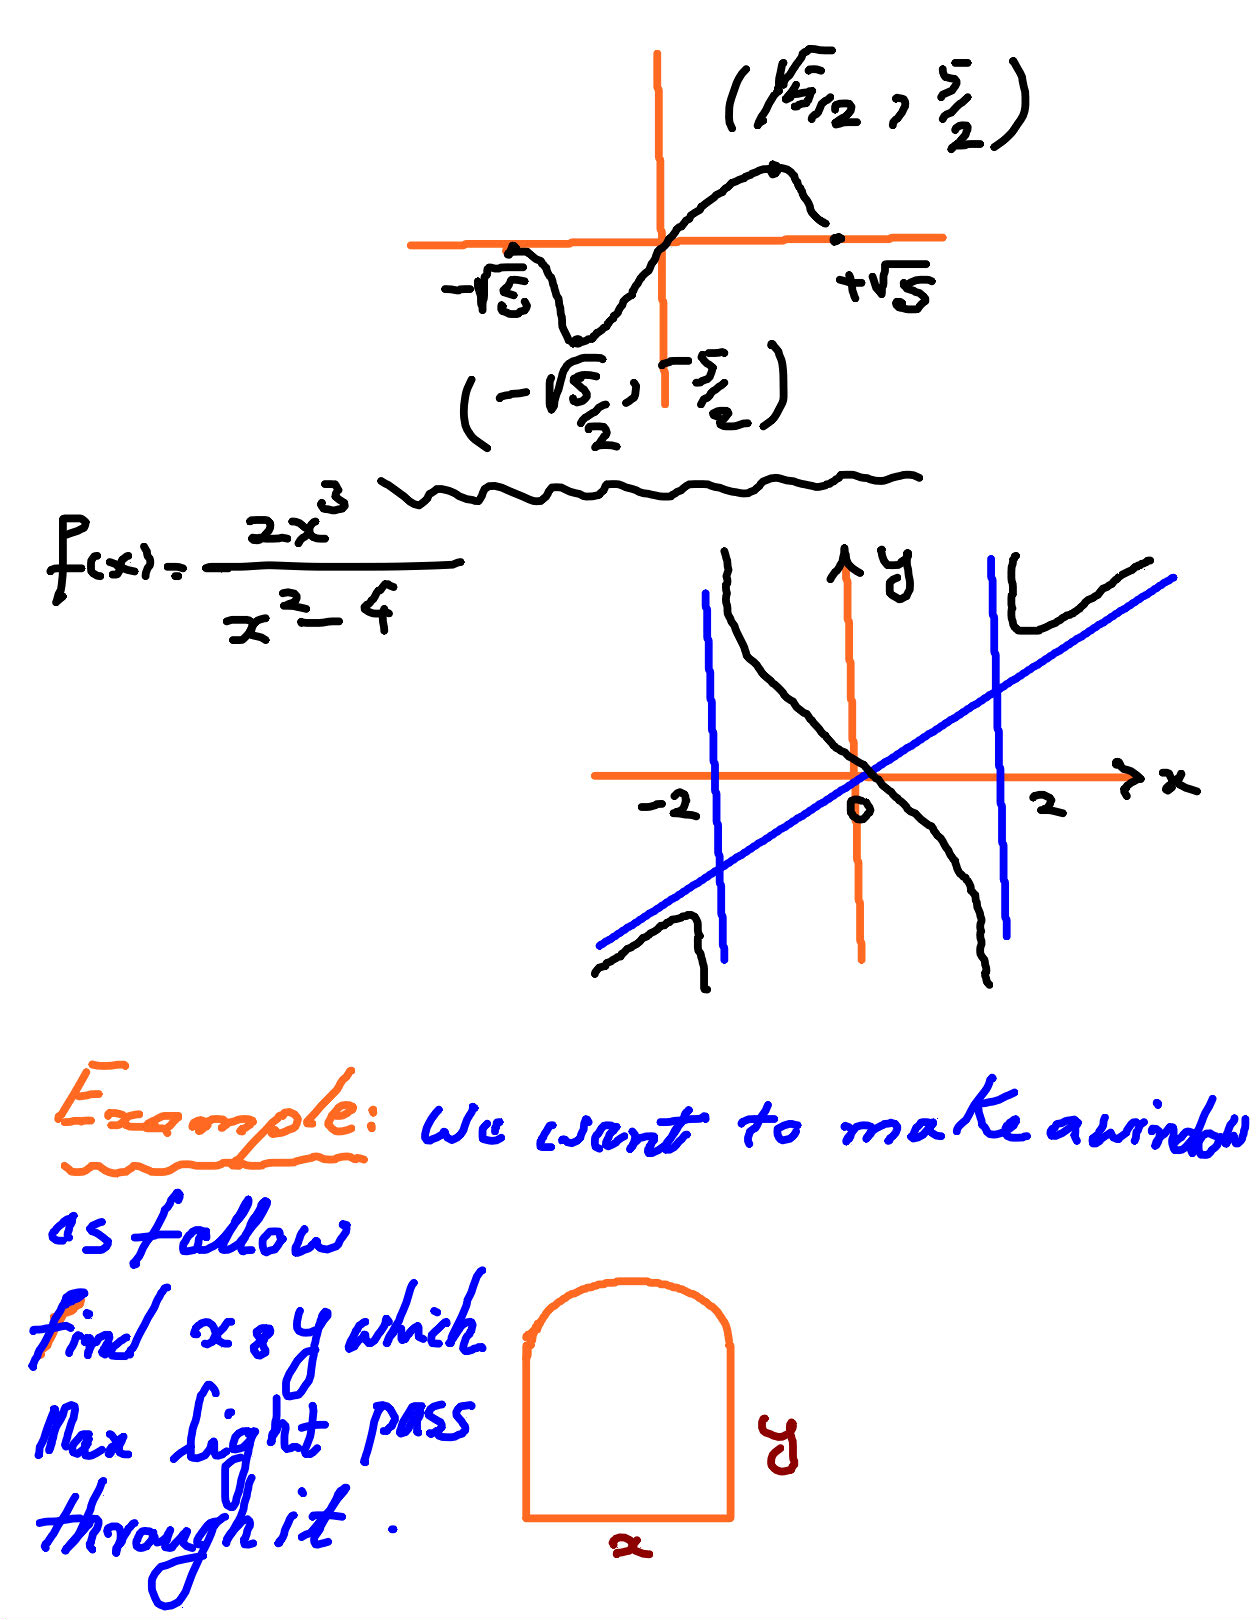 (√5/2 , 5/2)
-√5
+√5
(-√5/2 , -5/2)
f(x) = 2x³ / x² - 4
y
x
-2
0
2
Example: We want to make a window
as fallow
find x & y which
Max light pass
through it .
y
x